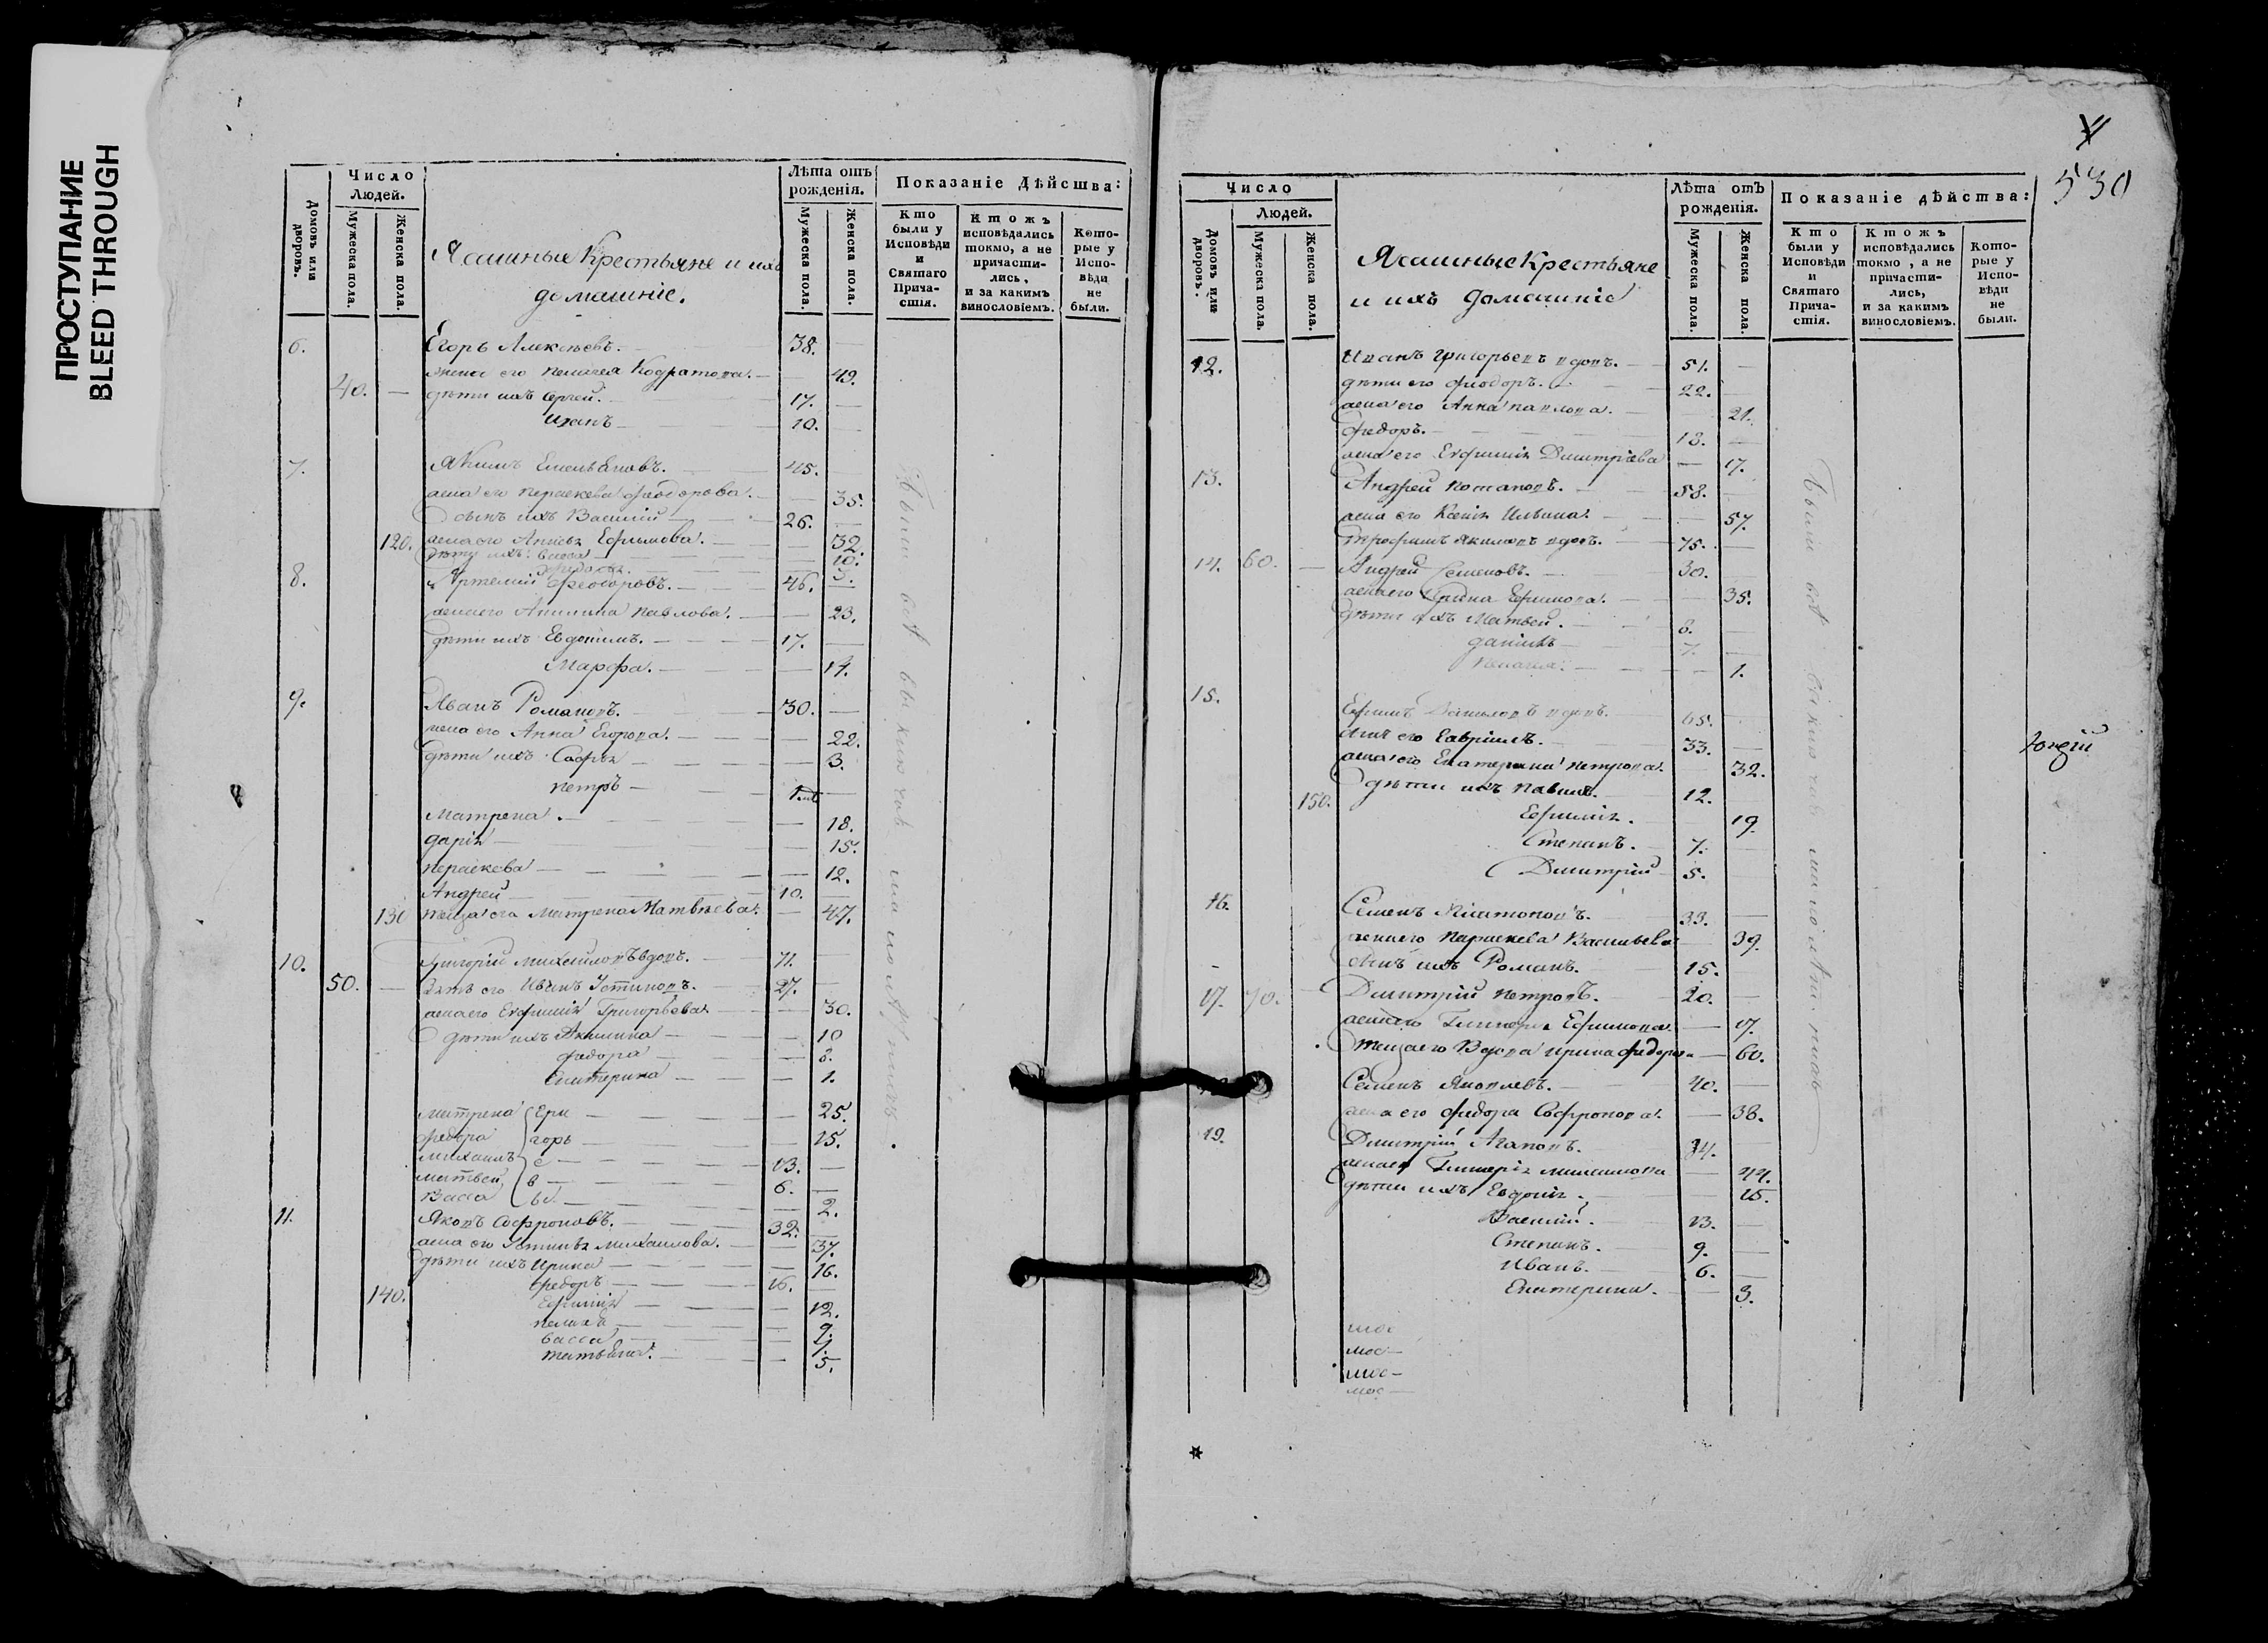 ПРОСТУПАНИЕ
BLEED THROUGH
Домовъ или дворовъ.
Число Людей.
Мужеска пола.
Женска пола.
Ясашные Крестьяне и ихъ
домашнiе.
Лѣта отъ рожденiя.
Мужеска пола.
Женска пола.
Показанiе Дѣйства:
Кто были у Исповѣди и Святаго Прича-стiя.
Ктожъ исповѣдались токмо, а не причасти-лись, и за какимъ винословiемъ.
Кото-рые у Испо-вѣди не были.
6. Егоръ Алексѣевъ. 38.
жена его Пелагея Кодратова. 49.
40. дѣти ихъ Сергей. 17.
Иванъ 10.
7. Якимъ Емельяновъ. 45.
жена его Пераскева Феодорова. 35.
сынъ ихъ Василiй 26.
120. жена его Ефимова. 32.
дѣти ихъ Васса 10.
3.
8. Артемiй Феодоровъ. 46.
жена его Акилина Павлова. 23.
дѣти ихъ Евдокимъ. 17.
Марфа. 14.
9. Иванъ Романовъ. 30.
жена его Анна Егорова. 22.
дѣти ихъ Софья 3.
Петръ
Матрена. 18.
Дарiя 15.
Пераскева 12.
Андрей 10.
130 теща его Матрена Матвѣева. 47.
10. Григорiй Михайловъ вдовъ. 71.
50. зять его Иванъ Устиновъ. 27.
жена его Евфимiя Григорьева. 30.
дѣти ихъ Акилина 10
Федора 8.
Екатерина 1.
Матрена Гри 25.
Федора горь 15.
Михаилъ е 13.
Матвей в 6.
Васса ы. 2.
11. Яковъ Софроновъ. 32.
жена его Устинья Михаилова. 37.
дѣти ихъ Ирина 16.
Федоръ 16.
140. Ефимiя 12.
9.
Васса
Татьяна. 5.
Были всѣ
530
Число
Людей.
Домовъ или дворовъ.
Мужеска пола.
Женска пола.
Ясашные Крестьяне
и ихъ домашнiе
Лѣта отъ рожденiя.
Мужеска пола.
Женска пола.
Показанiе дѣйства:
Кто были у Исповѣди и Святаго Прича-стiя.
Ктожъ исповѣдались токмо, а не причасти-лись, и за какимъ винословiемъ.
Кото-рые у Испо-вѣди не были.
12. Иванъ Григорьевъ вдовъ. 51.
дѣти его Фиодоръ. 22.
жена его Анна Павлова. 21.
Федоръ. 18.
жена его Евфимiя Димитрiева 17.
13. Андрей Потаповъ. 58.
жена его Ксенiя Ильина. 57.
Трофимъ Якимовъ вдовъ. 75.
14. 60. Андрей Семеновъ. 30.
жена его Ирина Ефимова. 35.
дѣти ихъ Матвей. 8.
Данiилъ 7.
Пелагея. 1.
15. Ефимъ вдовъ. 65.
сынъ его Гаврiилъ. 33.
жена его Екатерина Петрова. 32.
дѣти ихъ Павелъ. 12.
150. Ефимiя. 19.
Степанъ. 7.
Димитрiй 5.
16. Семенъ Платоновъ. 33.
жена его Параскева Васильева 39.
сынъ ихъ Романъ. 15.
17. 70. Димитрiй Петровъ. 20.
жена его Гликерiя Ефимова. 17.
теща его Вдова Ирина Федорова 60.
Семенъ Яковлевъ. 40.
жена его Федора Софронова. 38.
19. Димитрiй Агаповъ. 34.
жена его Гликерiя 44.
дѣти ихъ Евдокiя. 15.
Василiй. 13.
Степанъ. 9.
Иванъ. 6.
Екатерина. 3.
Были всѣ